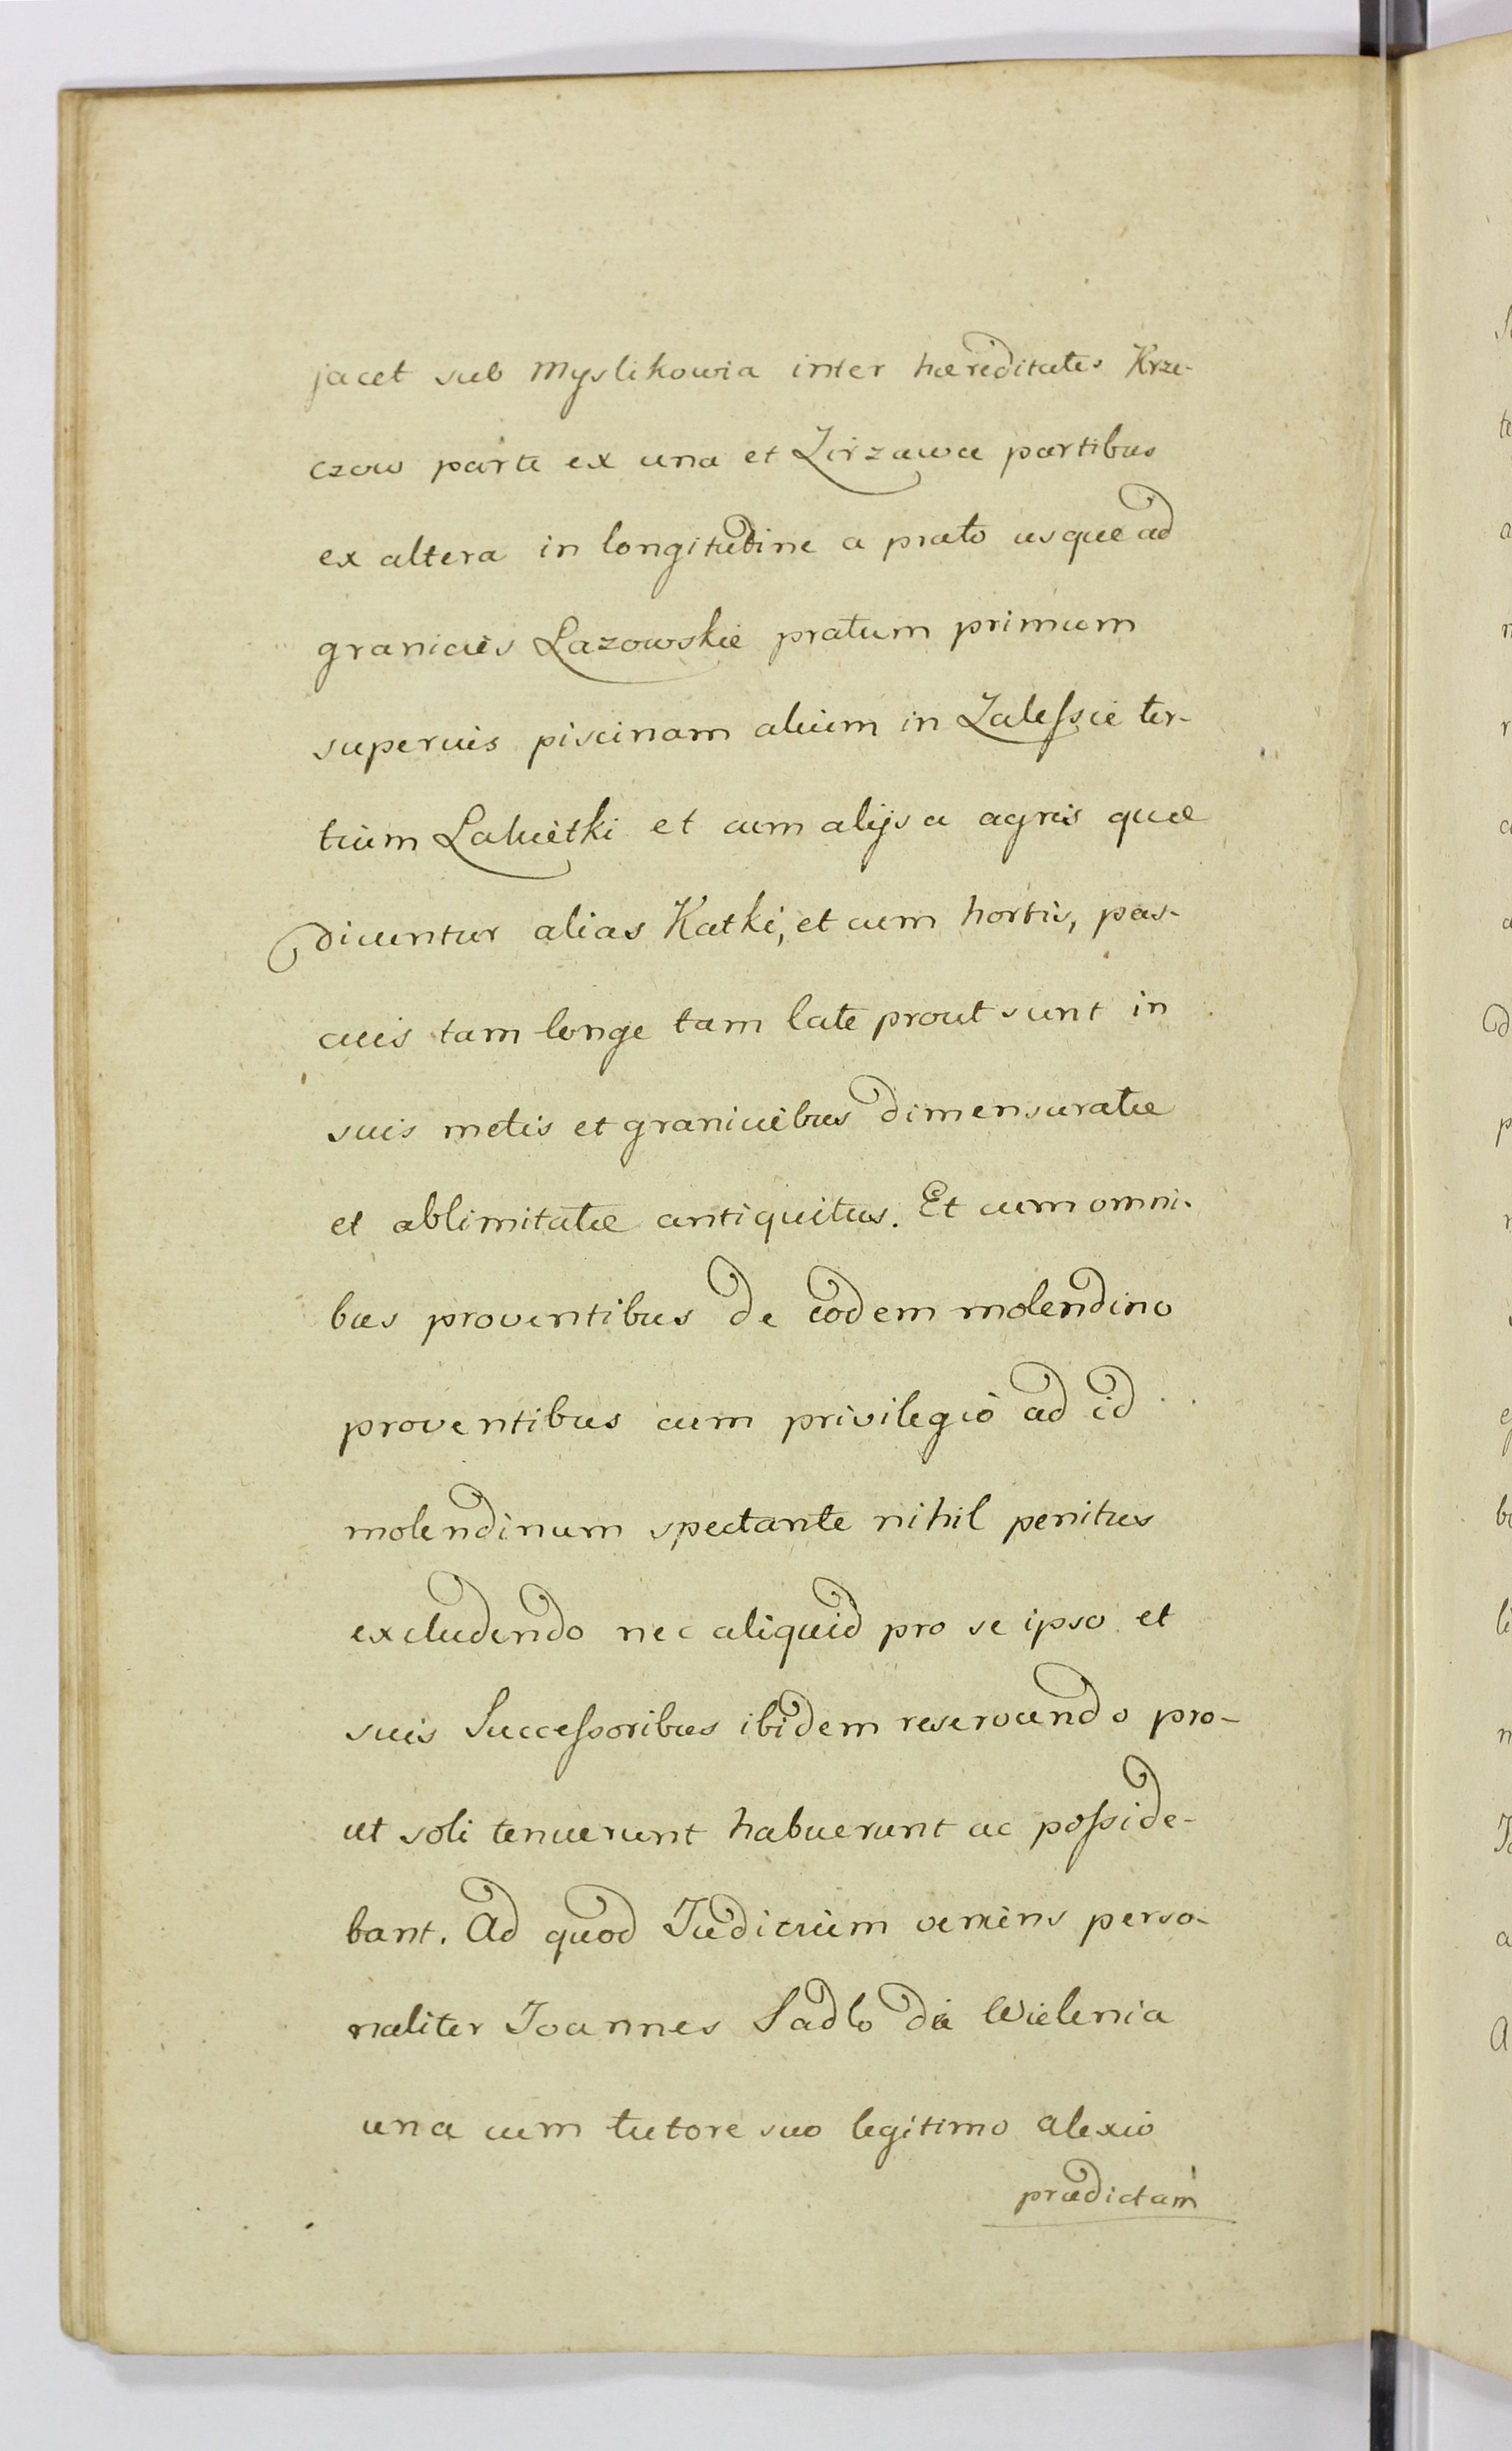 jacet sub Myslikowia inter hæreditates Krze-
czow parte ex una et Zirzawa partibus
ex altera in longitudine a prato usque ad
granicies Lazowskie pratum primum
superius piscinam alium in Zalessie ter-
tium Lahietki et cum alijs a agris quæ
dicuntur alias Katki, et cum hortis, pas-
cuis tam longe tam late prout sunt in
suis metis et graniciebus dimensuratæ
et ablimitatæ antiquitus. Et cum omni-
bus proventibus de eodem molendino
proventibus cum privilegio ad id
molendinum spectante nihil penitus
excludendo nec aliquid pro se ipso et
suis Successoribus ibidem reservando pro-
ut soli tenuerunt habuerunt ac posside-
bant. Ad quod Judicium veniens perso-
naliter Joannes Sadlo de Wielenia
una cum tutore suo legitimo Alexio
prædictam